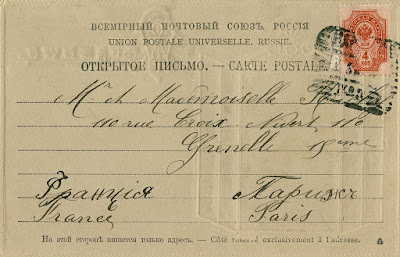 ВСЕМІРНЫЙ ПОЧТОВЫЙ СОЮЗЪ. РОССІЯ
UNION POSTALE UNIVERSELLE. RUSSIE.
ОТКРЫТОЕ ПИСЬМО. — CARTE POSTALE
4
Mr et Mademoiselle
110 rue Croix Nivert 110
Grenelle 15ème
Франція Парижъ
France Paris
На этой сторонѣ пишется только адресъ. — Côté réservé exclusivement à l'adresse.